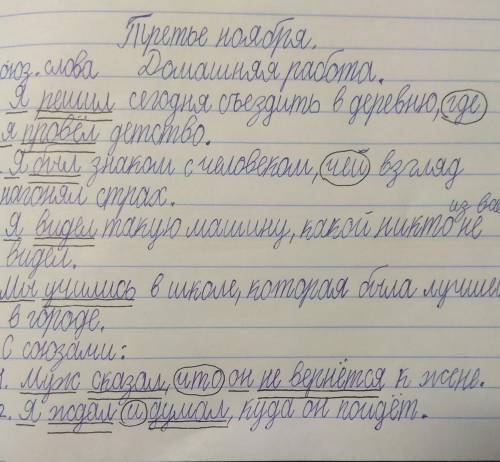 Третье ноября.
союз. слова Домашняя работа.
Я решил сегодня съездить в деревню, где
я провёл детство.
Я был знаком с человеком, чей взгляд
нагонял страх.
из вас
Я видел такую машину, какой никто не
видел.
Мы учились в школе, которая была лучшей
в городе.
С союзами:
1. Муж сказал, что он не вернётся к жене.
2. Я ждал и думал, куда он пойдёт.